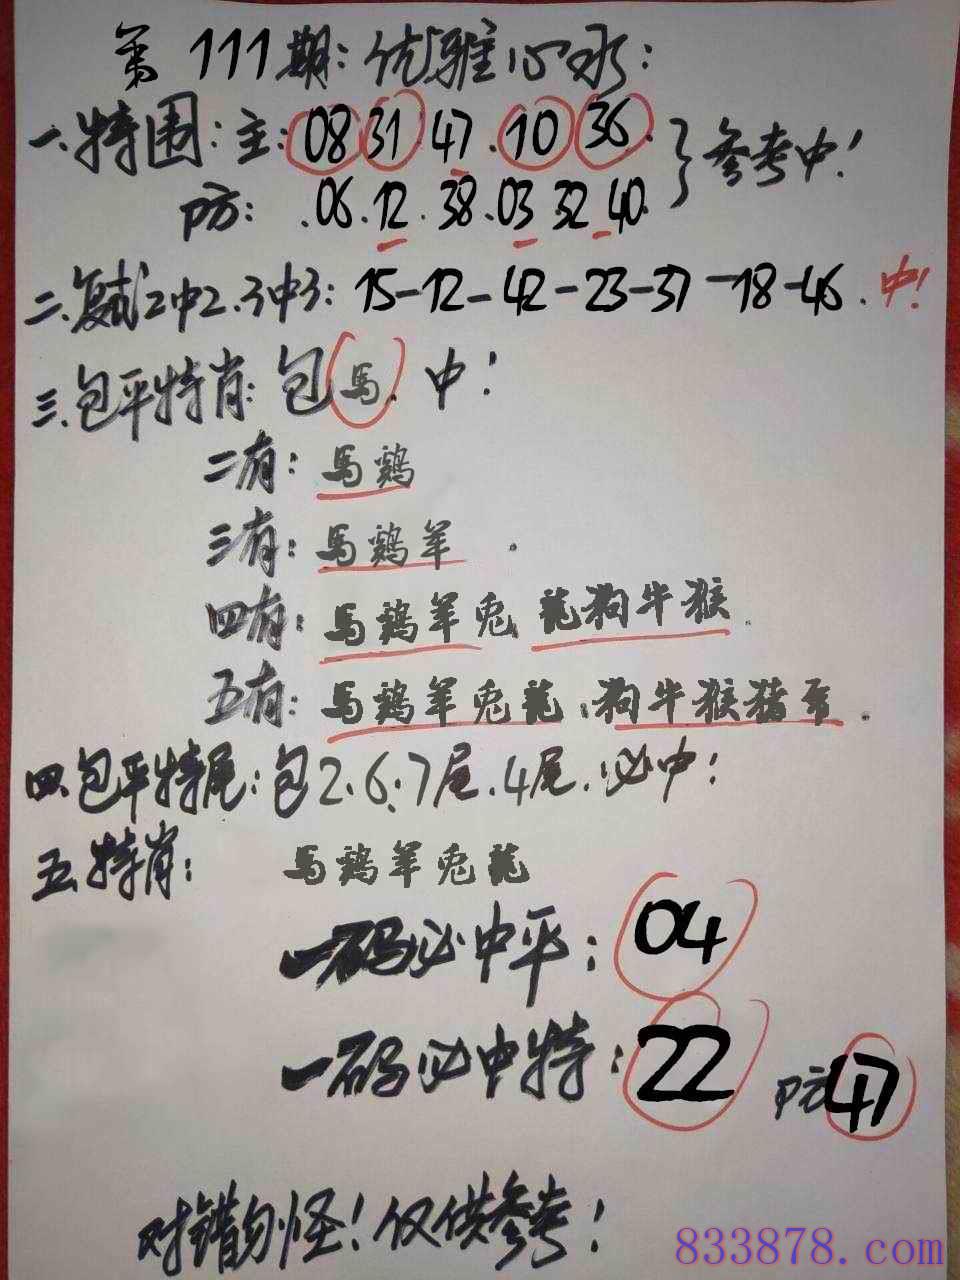 第111期：优雅心水：
一.特围：主：08 31 47.10 36.
防：.06.12.38.03 32 40.
参考中！
二.复试2中2.3中3：15-12-42-23-37-18-46.中！
三.包平特肖：包馬.中！
二有：馬鷄
三有：馬鷄羊.
四有：馬鷄羊兎.龍狗牛猴.
五有：馬鷄羊兎龍.狗牛猴猪.
四.包平特尾：包2.6.7尾.4尾.必中！
五.特肖：馬鷄羊兎龍
一码必中平：04
一码必中特：22 防47
对错勿怪！仅供参考！
833878.com